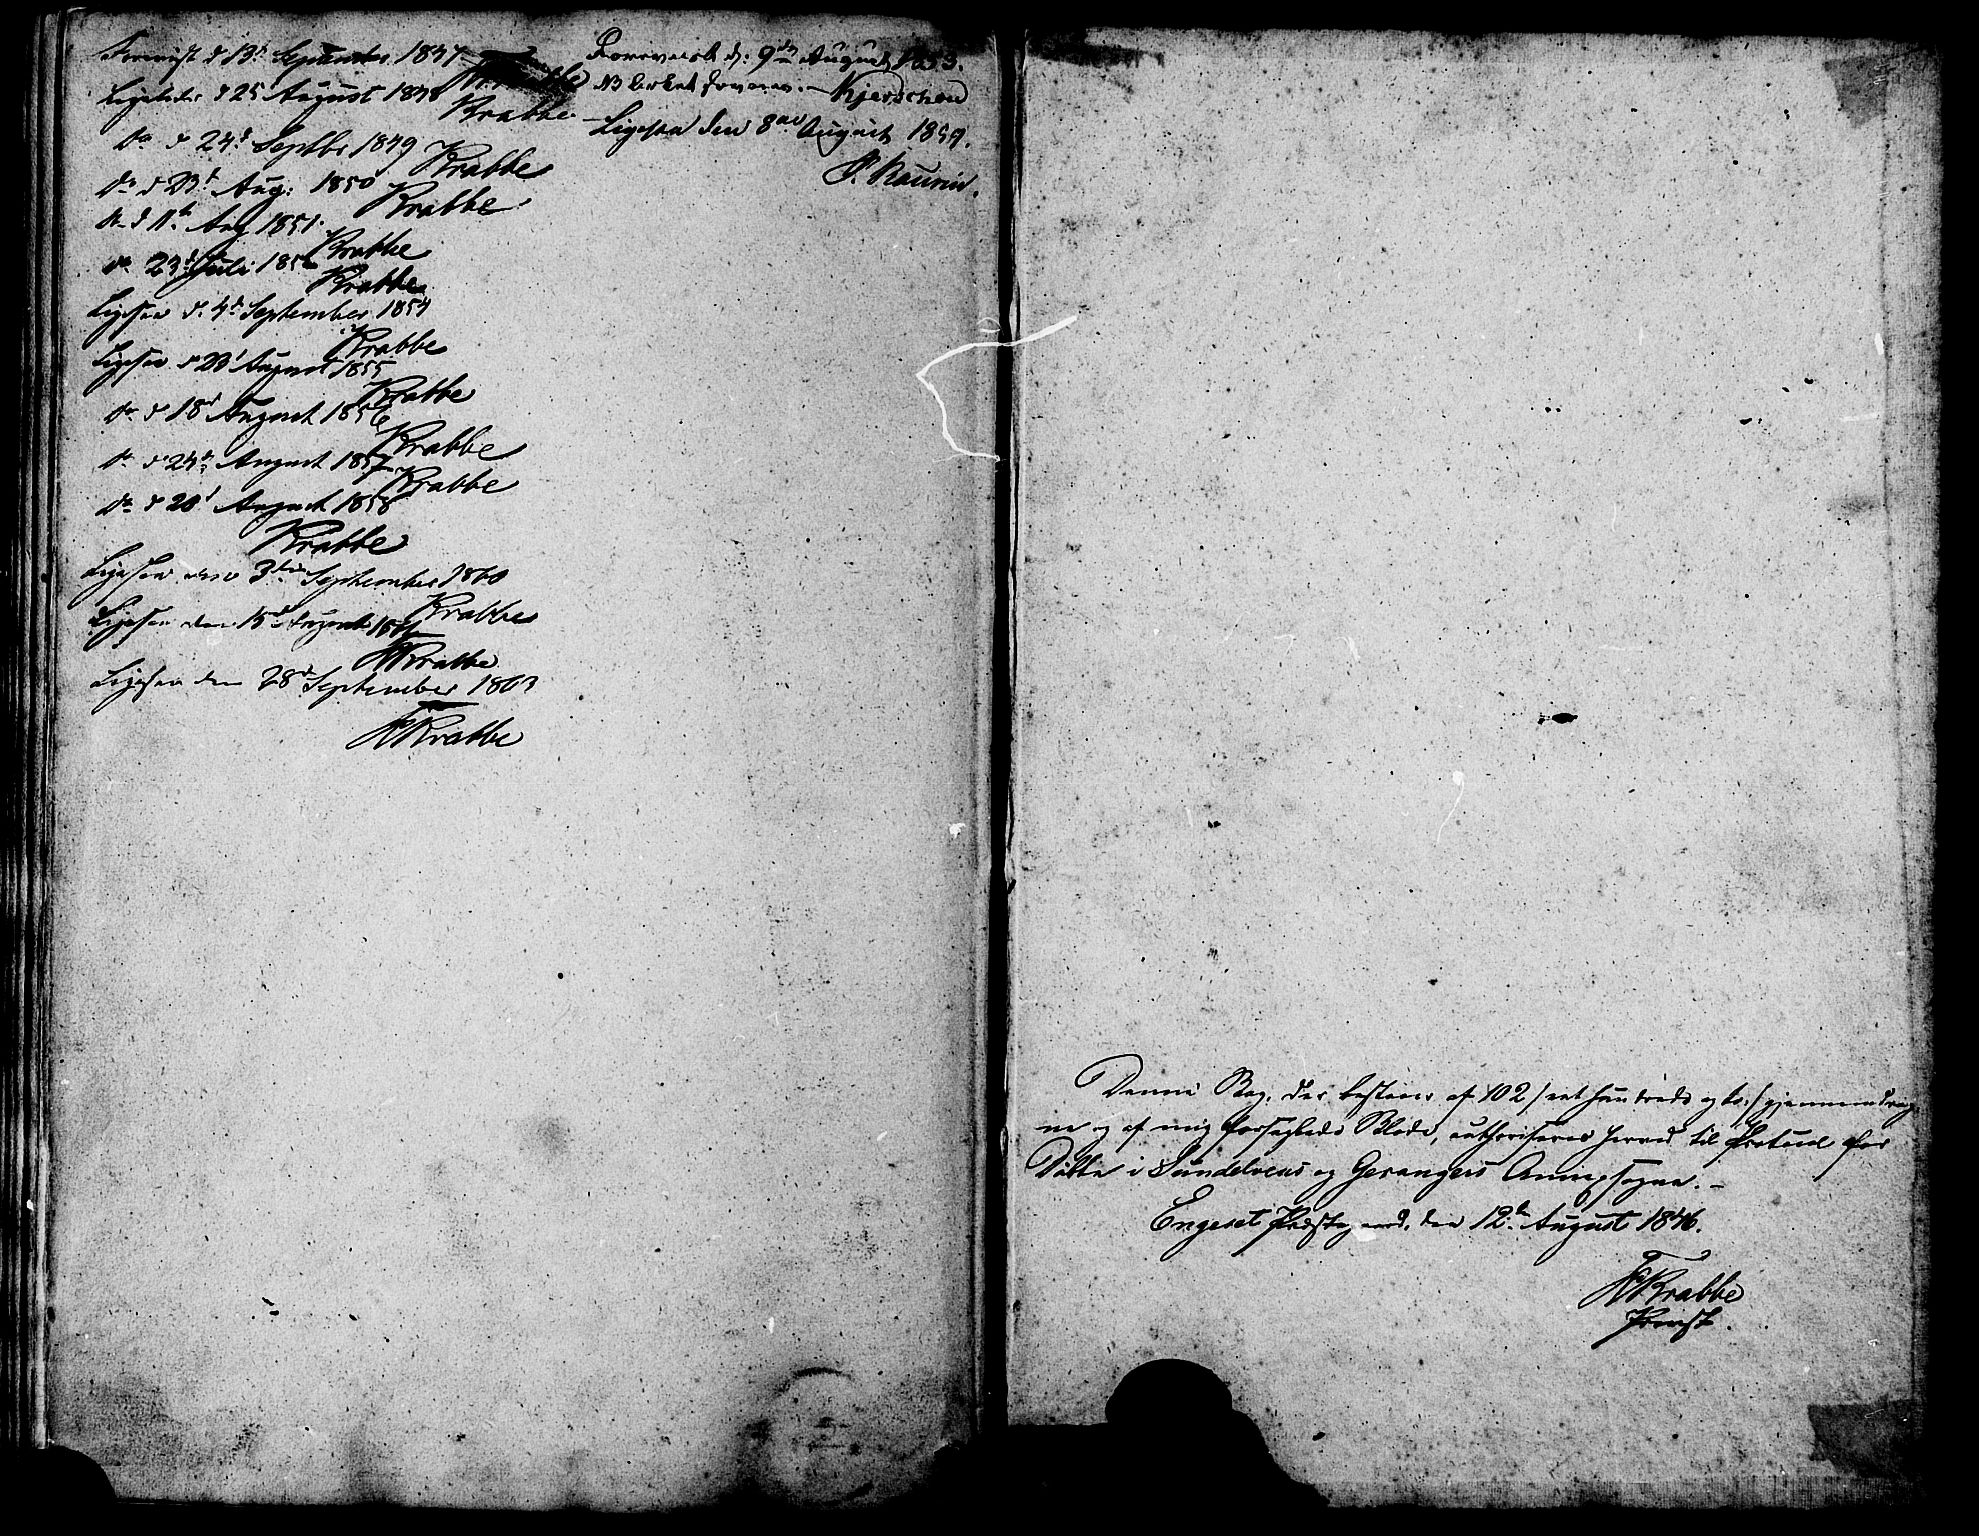 Foreviist d 13d September 1847
Krabbe
Ligeledes d 25 August 1848
Krabbe
do d 24d Septbr 1849
Krabbe
do d 23d Aug: 1850
Krabbe
do d 11te Aug 1851.
Krabbe
do 23d Juli 1852
Krabbe
Ligesaa d. 4d September 1854
Krabbe
Ligesaa d 23d August 1855
Krabbe
do d 18d August 1856
Krabbe
do d 24d August 1857
Krabbe
do d 20d August 1858
Krabbe
Ligesaa den 3die September 1860
Krabbe
Ligesaa den 15de August 1861
FKrabbe
Ligesaa den 28de September 1863
FKrabbe
Foreviist d: 9de August 1853.
Kjerschow
Ligesaa den 8de August 1859.
Denne Bog, der bestaaer af 102 /: eet hundrede og to :/ gjennemdrag-
ne og af mig forseglede Blade, authoriseres herved til Protocol for
Døbte i Sundelvens og Gerangers Annexsogne. –
Engeset Præstegaard, den 12te August 1846.
FKrabbe
Provst.